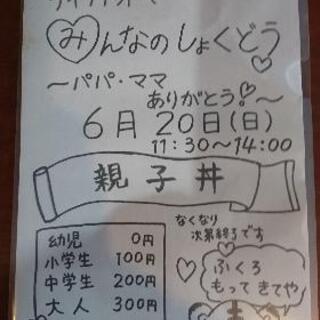 みんなのしょくどう
〜パパ・ママ
ありがとう!〜
6月20日(日)
11:30〜14:00
親子丼
幼児 0円
小学生 100円
中学生 200円
大人 300円
なくなり
次第終了です
ふくろ
もってきてや